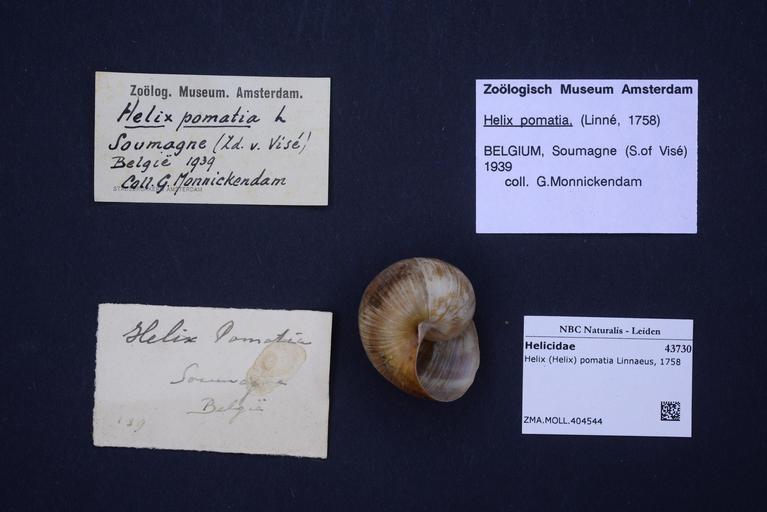 Zoölog. Museum. Amsterdam.
Helix pomatia L
Soumagne (Zd. v. Visé)
België 1939
Coll. G. Monnickendam
Zoölogisch Museum Amsterdam
Helix pomatia, (Linné, 1758)
BELGIUM, Soumagne (S.of Visé)
1939
coll. G.Monnickendam
Helix Pomatia
Soumagne
België
NBC Naturalis - Leiden
Helicidae 43730
Helix (Helix) pomatia Linnaeus, 1758
ZMA.MOLL.404544